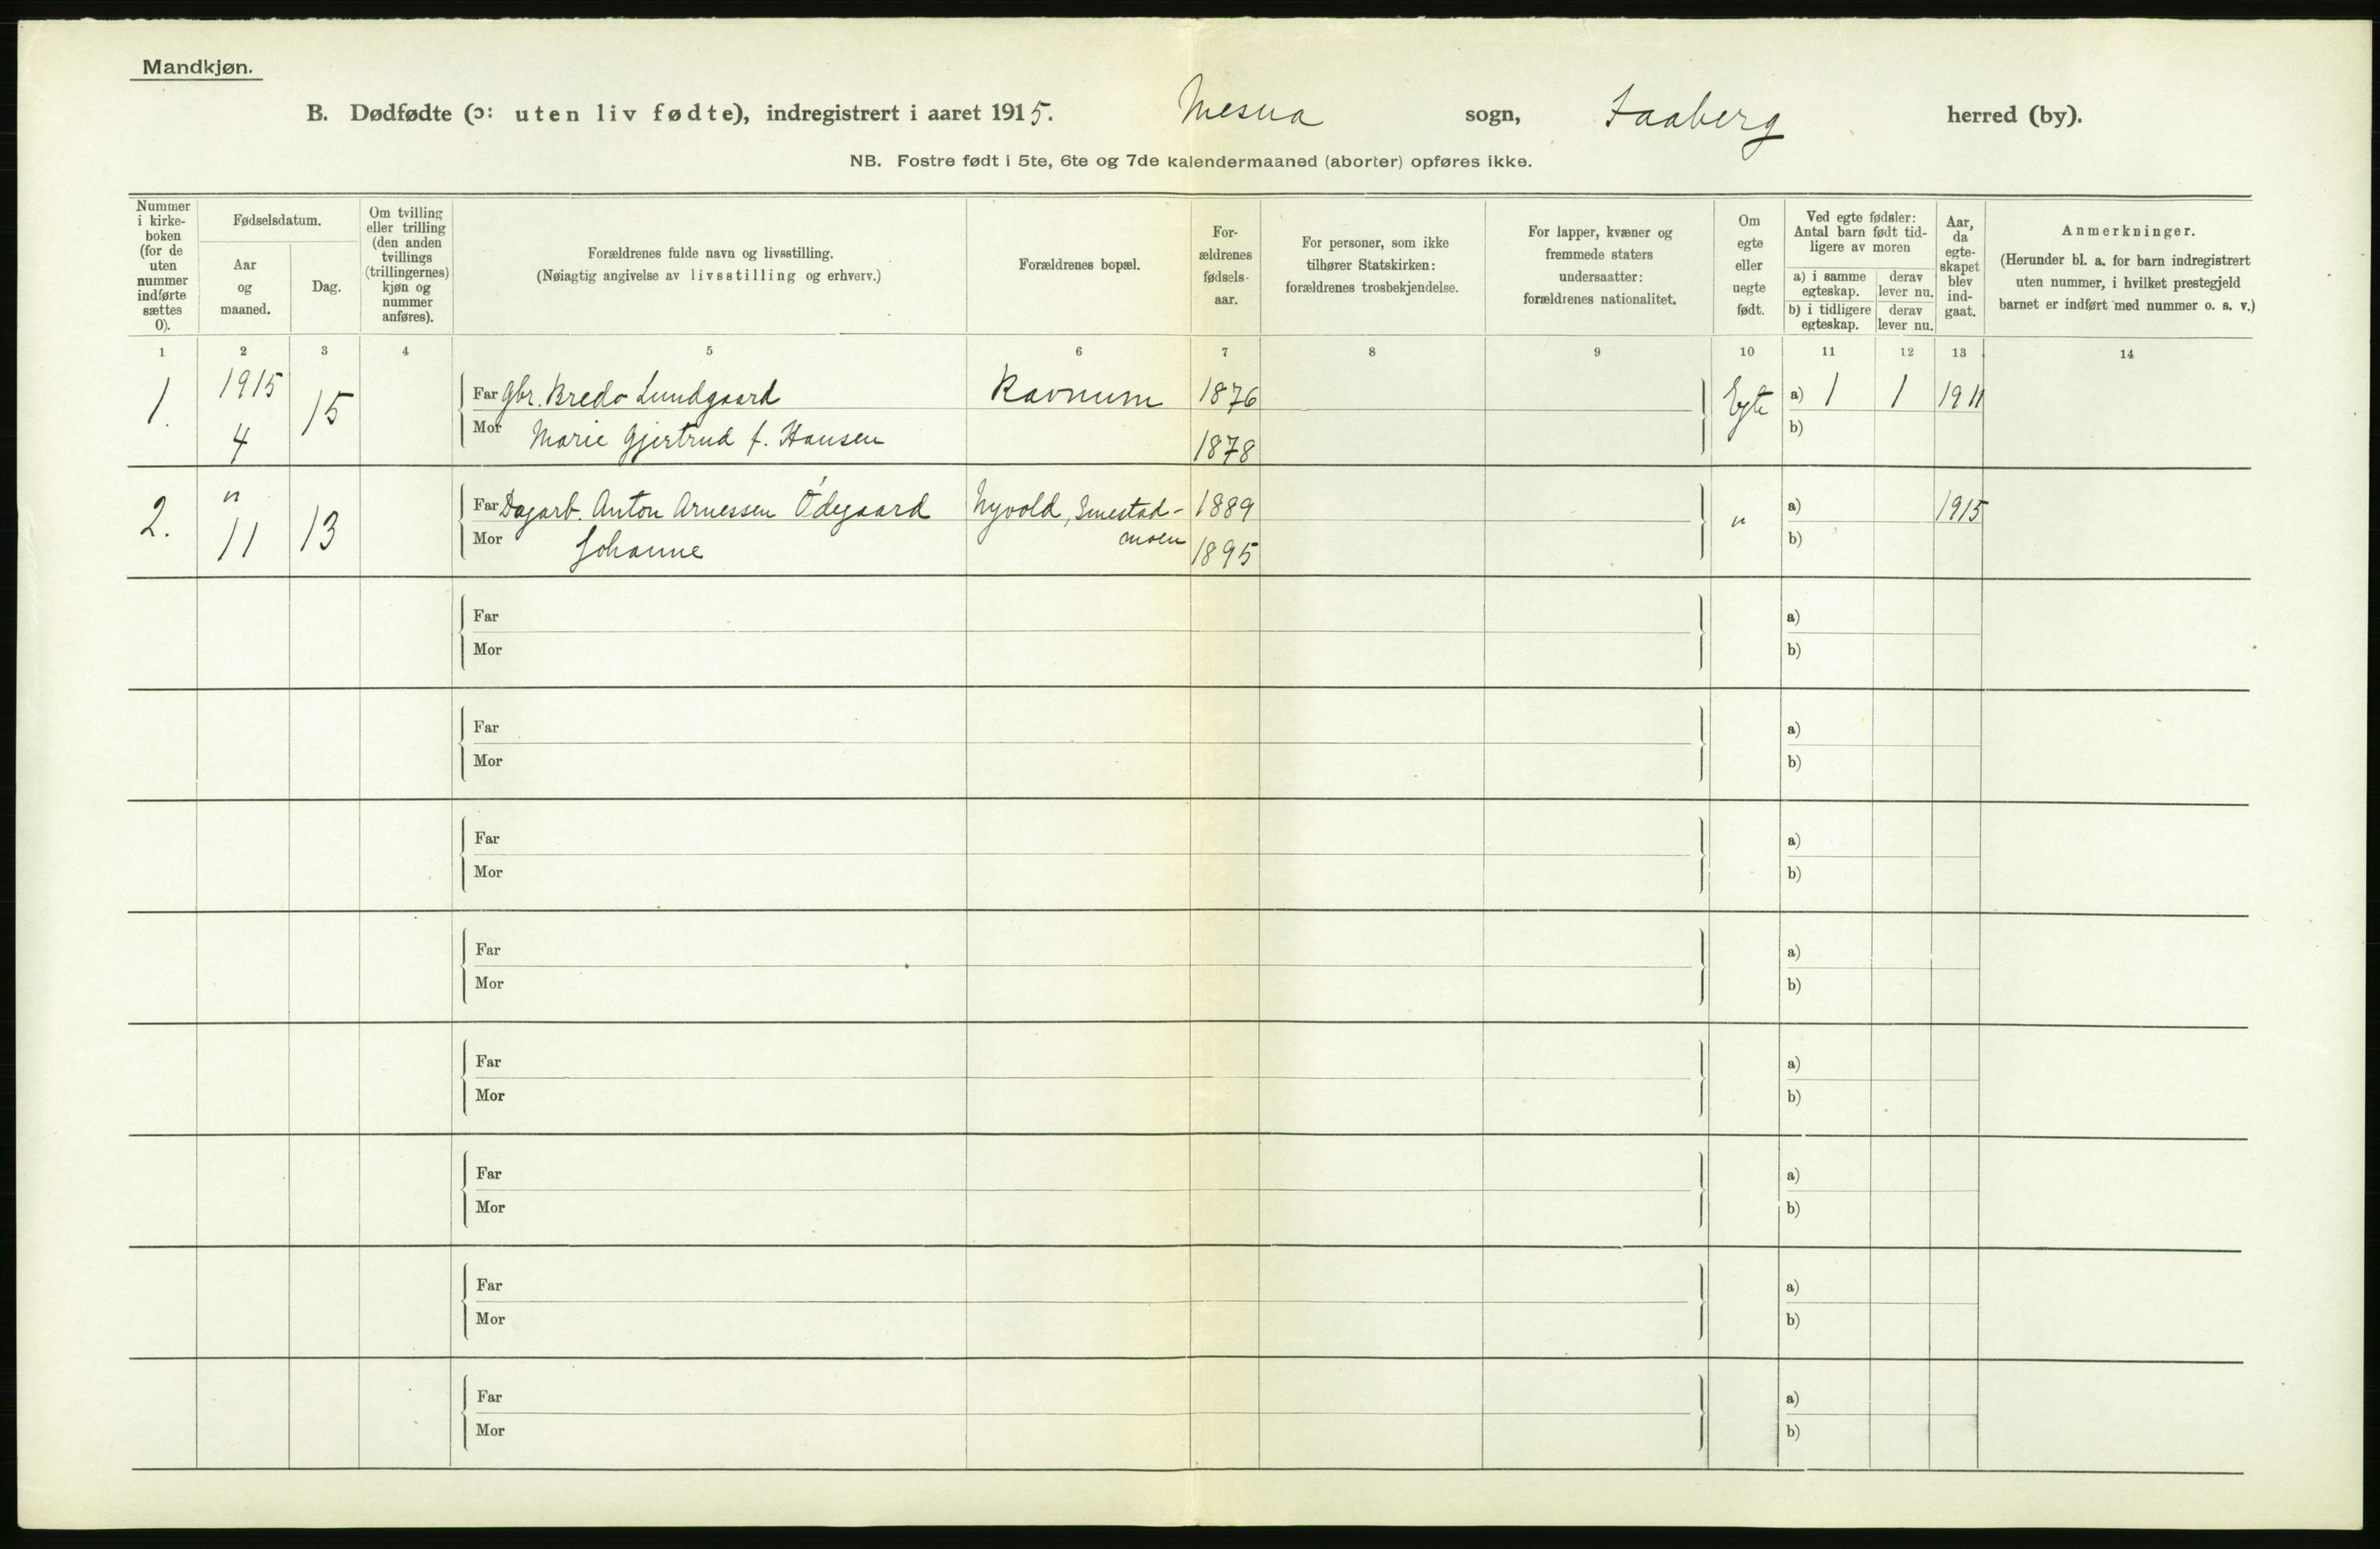 Mandkjøn.
B. Dødfødte (ɔ: uten liv fødte), indregistrert i aaret 1915. Mesna sogn, Faaberg herred (by).
NB. Fostre født i 5te, 6te og 7de kalendermaaned (aborter) opføres ikke.
Nummer
i kirke-
boken
(for de
uten
nummer
indførte
sættes
0).
Fødselsdatum.
Aar
og
maaned.
Dag.
Om tvilling
eller trilling
(den anden
tvillings
(trillingernes)
kjøn og
nummer
anføres).
Forældrenes fulde navn og livsstilling.
(Nøiagtig angivelse av livsstilling og erhverv.)
Forældrenes bopæl.
For-
ældrenes
fødsels-
aar.
For personer, som ikke
tilhører Statskirken:
forældrenes trosbekjendelse.
For lapper, kvæner og
fremmede staters
undersaatter:
forældrenes nationalitet.
Om
egte
eller
uegte
født.
Ved egte fødsler:
Antal barn født tid-
ligere av moren
a) i samme
egteskap.
derav
lever nu.
b) i tidligere
egteskap.
derav
lever nu.
Aar,
da
egte-
skapet
blev
ind-
gaat.
Anmerkninger.
(Herunder bl. a. for barn indregistrert
uten nummer, i hvilket prestegjeld
barnet er indført med nummer o. s. v.)
1 2 3 4 5 6 7 8 9 10 11 12 13 14
1. 1915 15 Far Gbr. Bredo Lundgaard Ravnum 1876 Egte a) 1 1 1911
4 Mor Marie Gjertrud f. Hansen 1878 b)
2. " 13 Far Dagarb. Anton Arnessen Ødegaard Nyvold, Smestad- 1889 " a) 1915
11 Mor Johanne moen 1895 b)
Far a)
Mor b)
Far a)
Mor b)
Far a)
Mor b)
Far a)
Mor b)
Far a)
Mor b)
Far a)
Mor b)
Far a)
Mor b)
Far a)
Mor b)